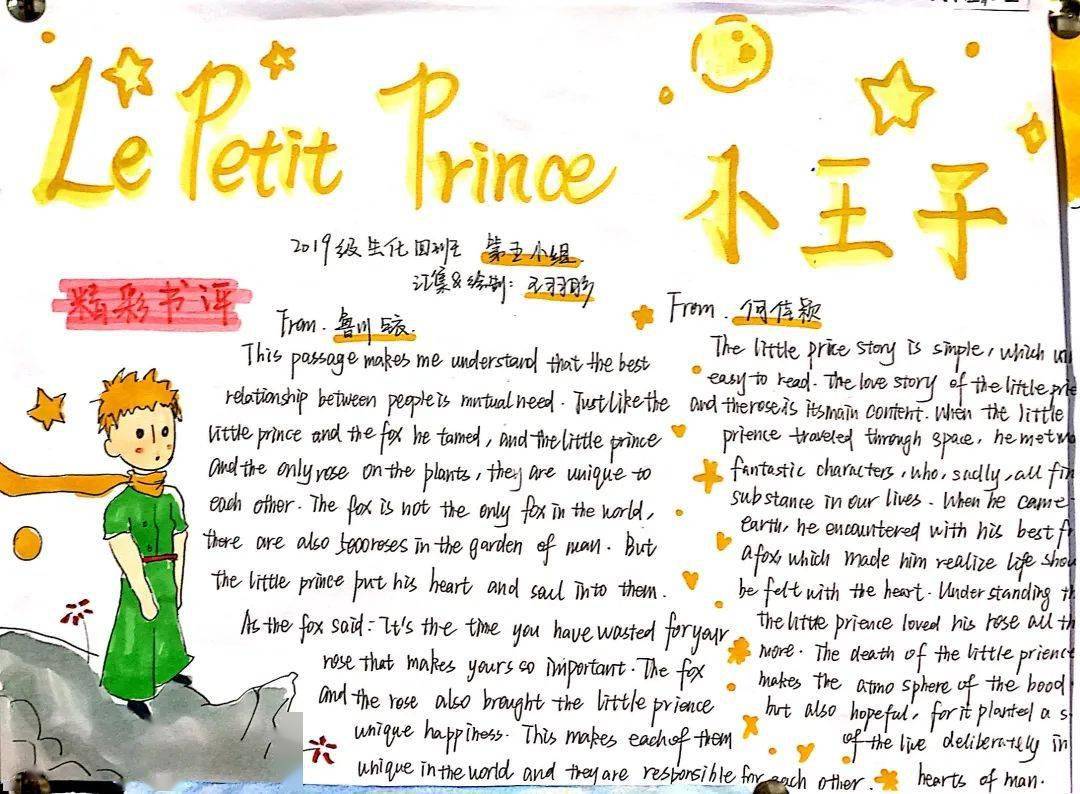 Le Petit Prince 小王子
2019级生化国班 第五小组
汇集&绘制: 王羽彤
精彩书评
From.
This passage makes me understand that the best
relationship between people is mntual need. Just like the
little prince and the fox he tamed, and the little prince
and the only rose on the plants, they are unique to
each other. The fox is not the only fox in the world,
there are also 5000 roses in the garden of man. But
the little prince put his heart and saul into them.
As the fox said: It's the time you have wasted for your
rose that makes yours so important. The fox
and the rose also brought the little prience
unique happiness. This makes each of them
unique in the world and they are responsible for each other.
From. 何佳颖
The little price story is simple, which
easy to read. The love story of the little
and the rose is its main content. When the little
prience traveled through space, he met
fantastic characters, who, sadly, all
substance in our lives. When he came
earth, he encountered with his best
a fox, which made him realize life
be felt with the heart. Understanding
the little prience loved his rose all
more. The death of the little prience
makes the atmosphere of the bood
but also hopeful, for it planted a
of the live deliberately in
hearts of man.